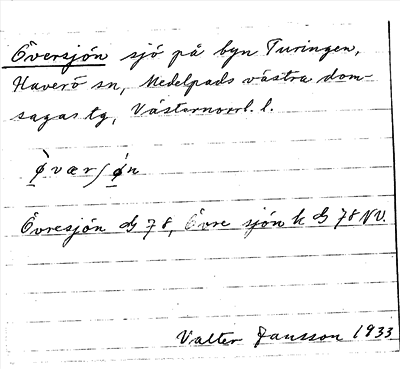 Översjön sjö på byn Turingen,
Haverö sn, Medelpads västra dom-
sagas tg, Västernorrl. l.
ø̀værʃø̀n
Övresjön dG 78, Övre sjön k dG 78 NV.
Valter Jansson 1933